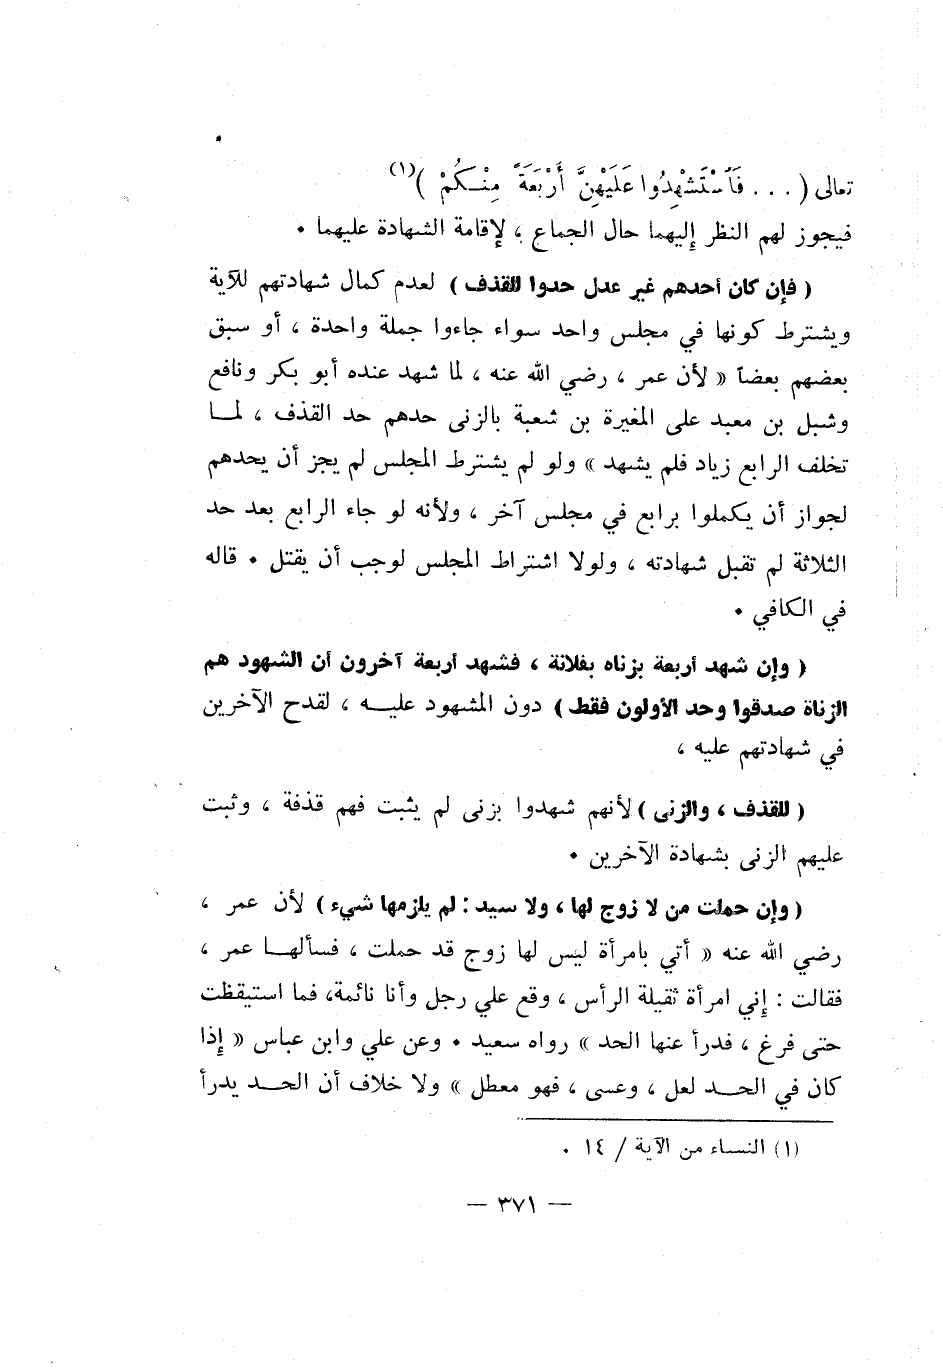 تعالى ( . . . فَٱسْتَشْهِدُوا عَلَيْهِنَّ أَرْبَعَةً مِنْكُمْ )(١)
فيجوز لهم النظر إليهما حال الجماع ، لإقامة الشهادة عليهما .
( فإن كان أحدهم غير عدل حدوا للقذف ) لعدم كمال شهادتهم للآية
ويشترط كونها في مجلس واحد سواء جاءوا جملة واحدة ، أو سبق
بعضهم بعضاً « لأن عمر ، رضي الله عنه ، لما شهد عنده أبو بكر ونافع
وشبل بن معبد على المغيرة بن شعبة بالزنى حدهم حد القذف ، لما
تخلف الرابع زياد فلم يشهد » ولو لم يشترط المجلس لم يجز أن يحدهم
لجواز أن يكملوا برابع في مجلس آخر ، ولأنه لو جاء الرابع بعد حد
الثلاثة لم تقبل شهادته ، ولولا اشتراط المجلس لوجب أن يقتل . قاله
في الكافي .
( وإن شهد أربعة بزناه بفلانة ، فشهد أربعة آخرون أن الشهود هم
الزناة صدقوا وحد الأولون فقط ) دون المشهود عليه ، لقدح الآخرين
في شهادتهم عليه ،
( للقذف ، والزنى ) لأنهم شهدوا بزنى لم يثبت فهم قذفة ، وثبت
عليهم الزنى بشهادة الآخرين .
( وإن حملت من لا زوج لها ، ولا سيد : لم يلزمها شيء ) لأن عمر ،
رضي الله عنه « أتي بامرأة ليس لها زوج قد حملت ، فسألها عمر ،
فقالت : إني امرأة ثقيلة الرأس ، وقع علي رجل وأنا نائمة، فما استيقظت
حتى فرغ ، فدرأ عنها الحد » رواه سعيد . وعن علي وابن عباس « إذا
كان في الحد لعل ، وعسى ، فهو معطل » ولا خلاف أن الحد يدرأ
(١) النساء من الآية / ١٤ .
— ٣٧١ —